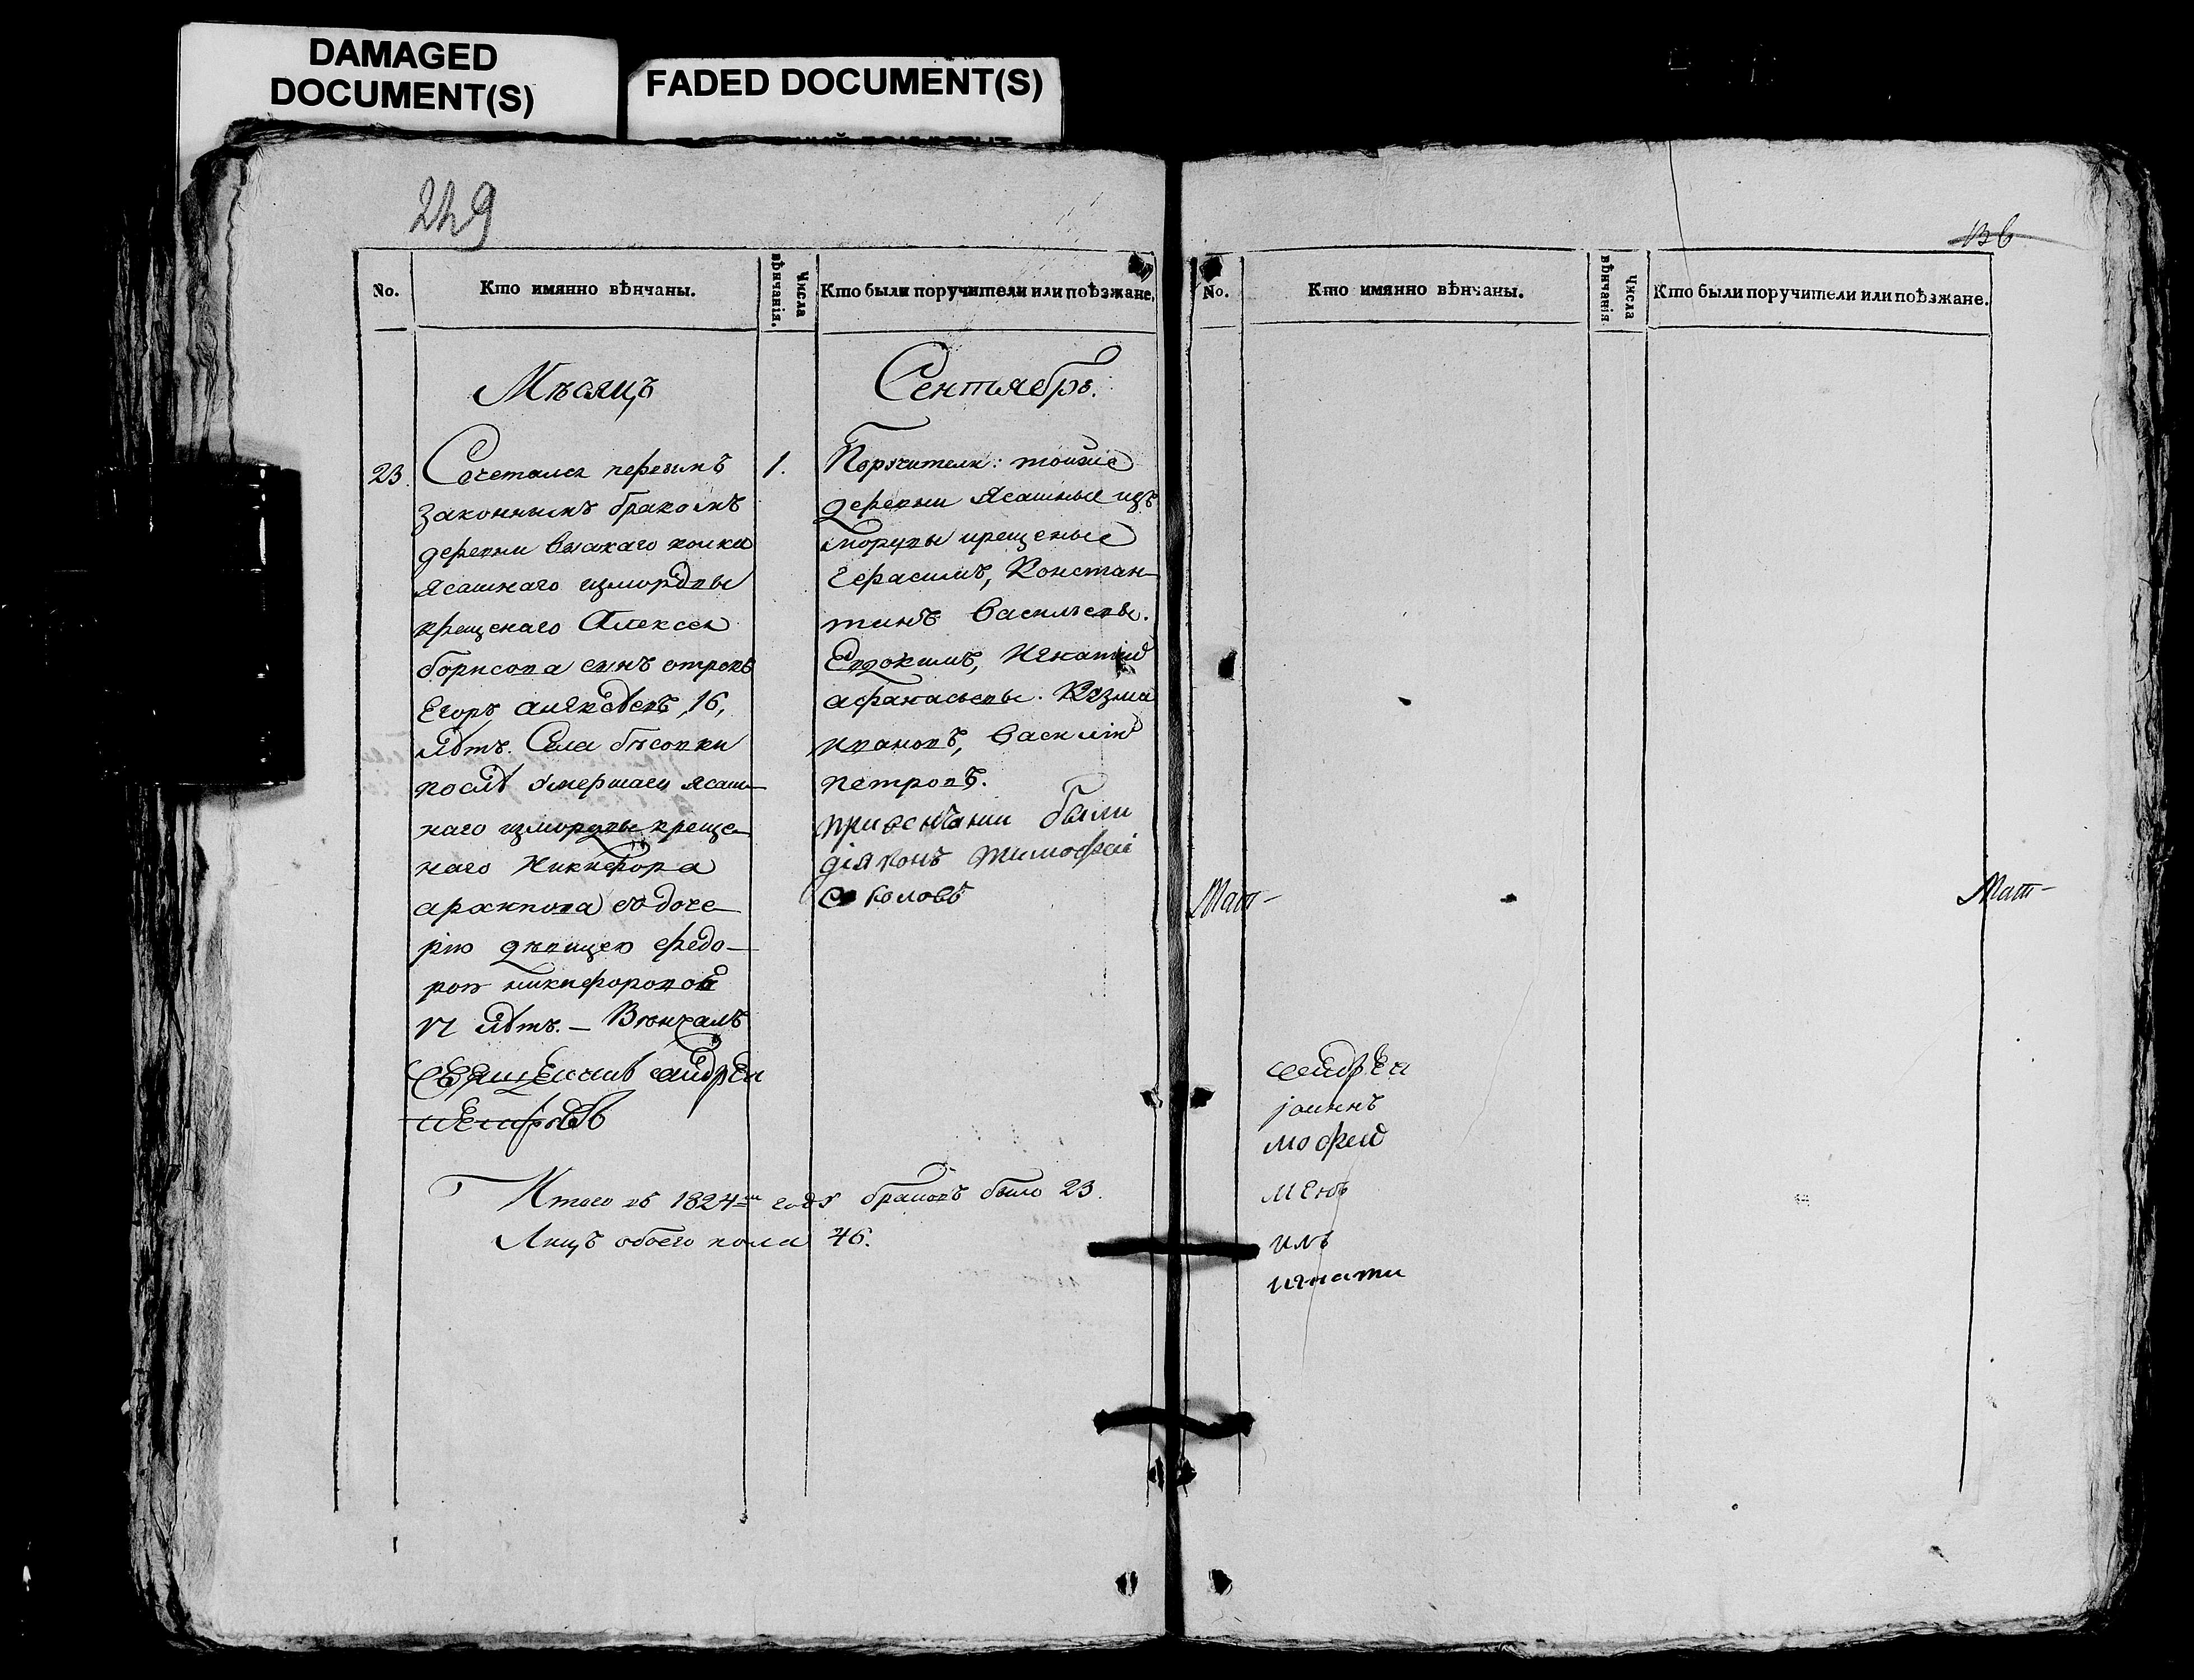 DAMAGED
DOCUMENT(S)
FADED DOCUMENT(S)
249
No.
Кто имянно вѣнчаны.
Числа
вѣнчанія.
Кто были поручители или поѣзжане.
Мѣсяцъ
Сентябрь.
23.
Сочетался первымъ
законнымъ бракомъ
деревни
ясашнаго измордвы
крещенаго Алексея
борисова сынъ отрокъ
Егоръ алѣксѣевъ, 16,
лѣтъ. Села бѣсовки
послѣ умершаго ясаш-
наго измордвы креще-
наго Никифора
архипова его доче-
рію дѣвицею федо-
рой никифоровой
лѣтъ. – Вѣнчалъ
священникъ андрей
1.
Поручители: тойже
деревни Ясашные изъ
мордвы крещеные
Герасимъ, Констан-
тинъ Васильевы.
Евдокимъ, Игнатий
афанасьевы. Козма
ивановъ, василий
петровъ.
при венчании были
діяконъ тимофей
соколовъ
Итого въ 1824м году браковъ было 23.
Лицъ обоего пола 46.
No.
Кто имянно вѣнчаны.
Числа
вѣнчанія
Кто были поручители или поѣзжане.
Мат-
Мат-
андрей
іоаннъ
мофей
игнати